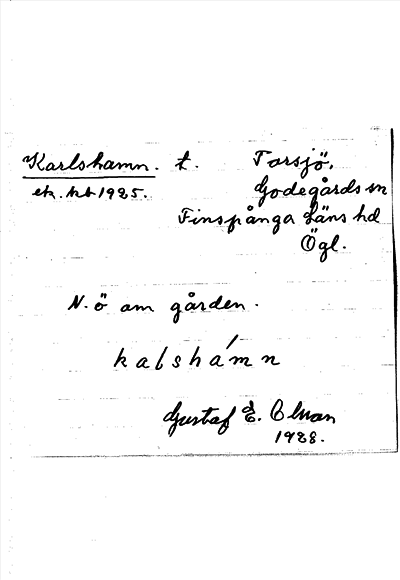 Karlshamn. t. Torsjö,
ek. kb 1925. Godegårds sn
Finspånga Läns hd
Ögl.
N. ö om gården.
kalshámn
Gustaf E.
1928.